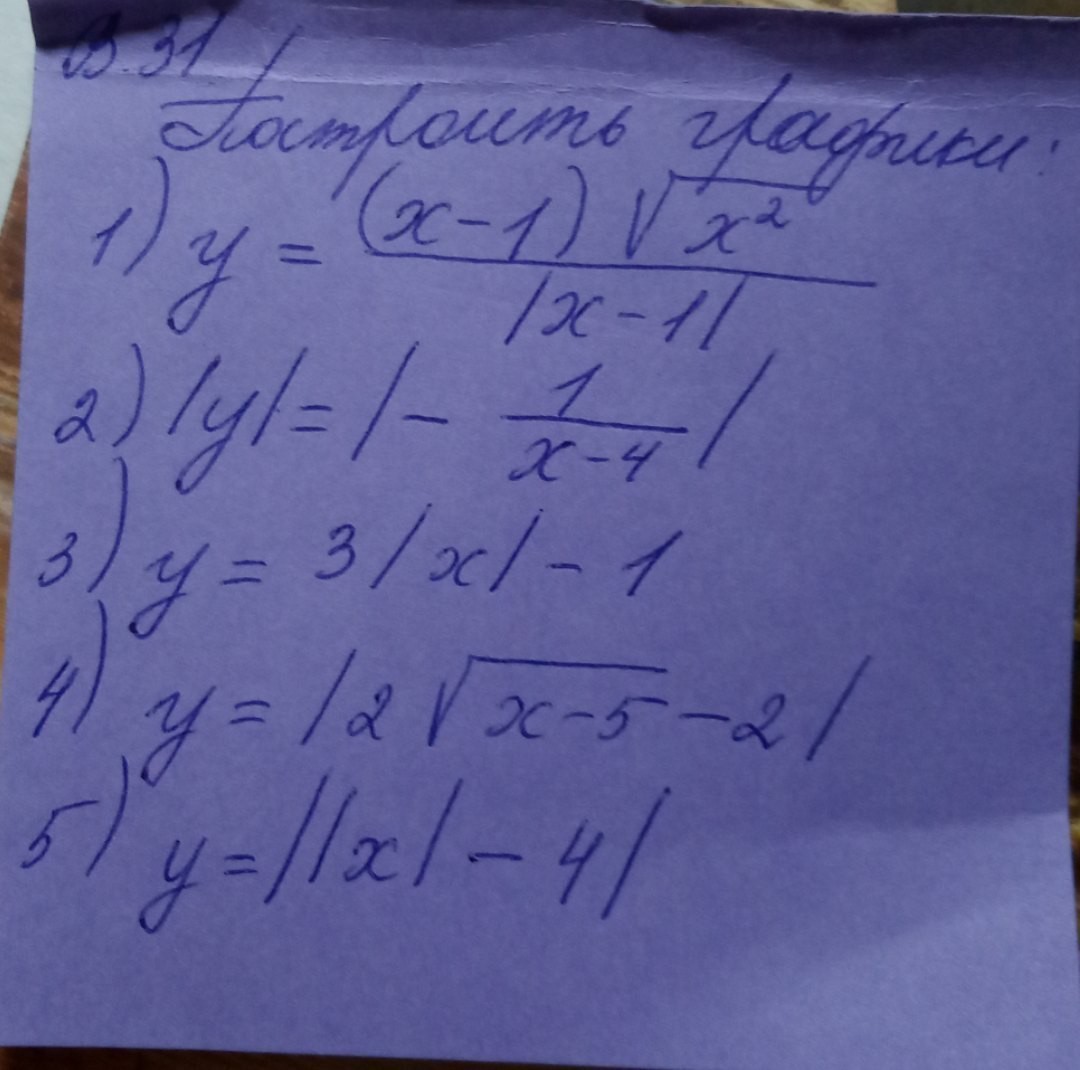 В.31
Построить графики:
1) y = (x-1)√x² / |x-1|
2) |y| = |- 1/(x-4)|
3) y = 3|x| - 1
4) y = |2√x-5 - 2|
5) y = ||x| - 4|